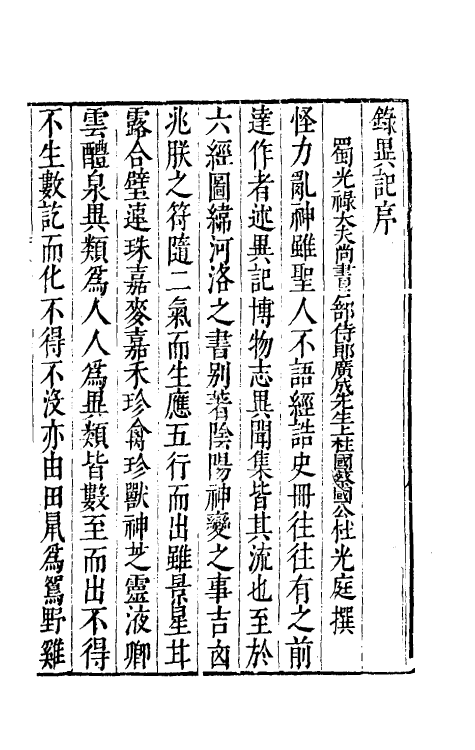 錄異記序
蜀光祿大夫尚書戶部侍郎廣成先生上柱國蔡國公杜光庭撰
怪力亂神雖聖人不語經誥史冊徃徃有之前
達作者述異記博物志異聞集皆其流也至於
六經圖緯河洛之書別著陰陽神變之事吉凶
兆朕之符隨二氣而生應五行而出雖景星甘
露合璧連珠嘉麥嘉禾珍禽珍獸神芝靈液卿
雲醴泉異類為人人為異類皆數至而出不得
不生數訖而化不得不沒亦由田鼠為鴽野雞